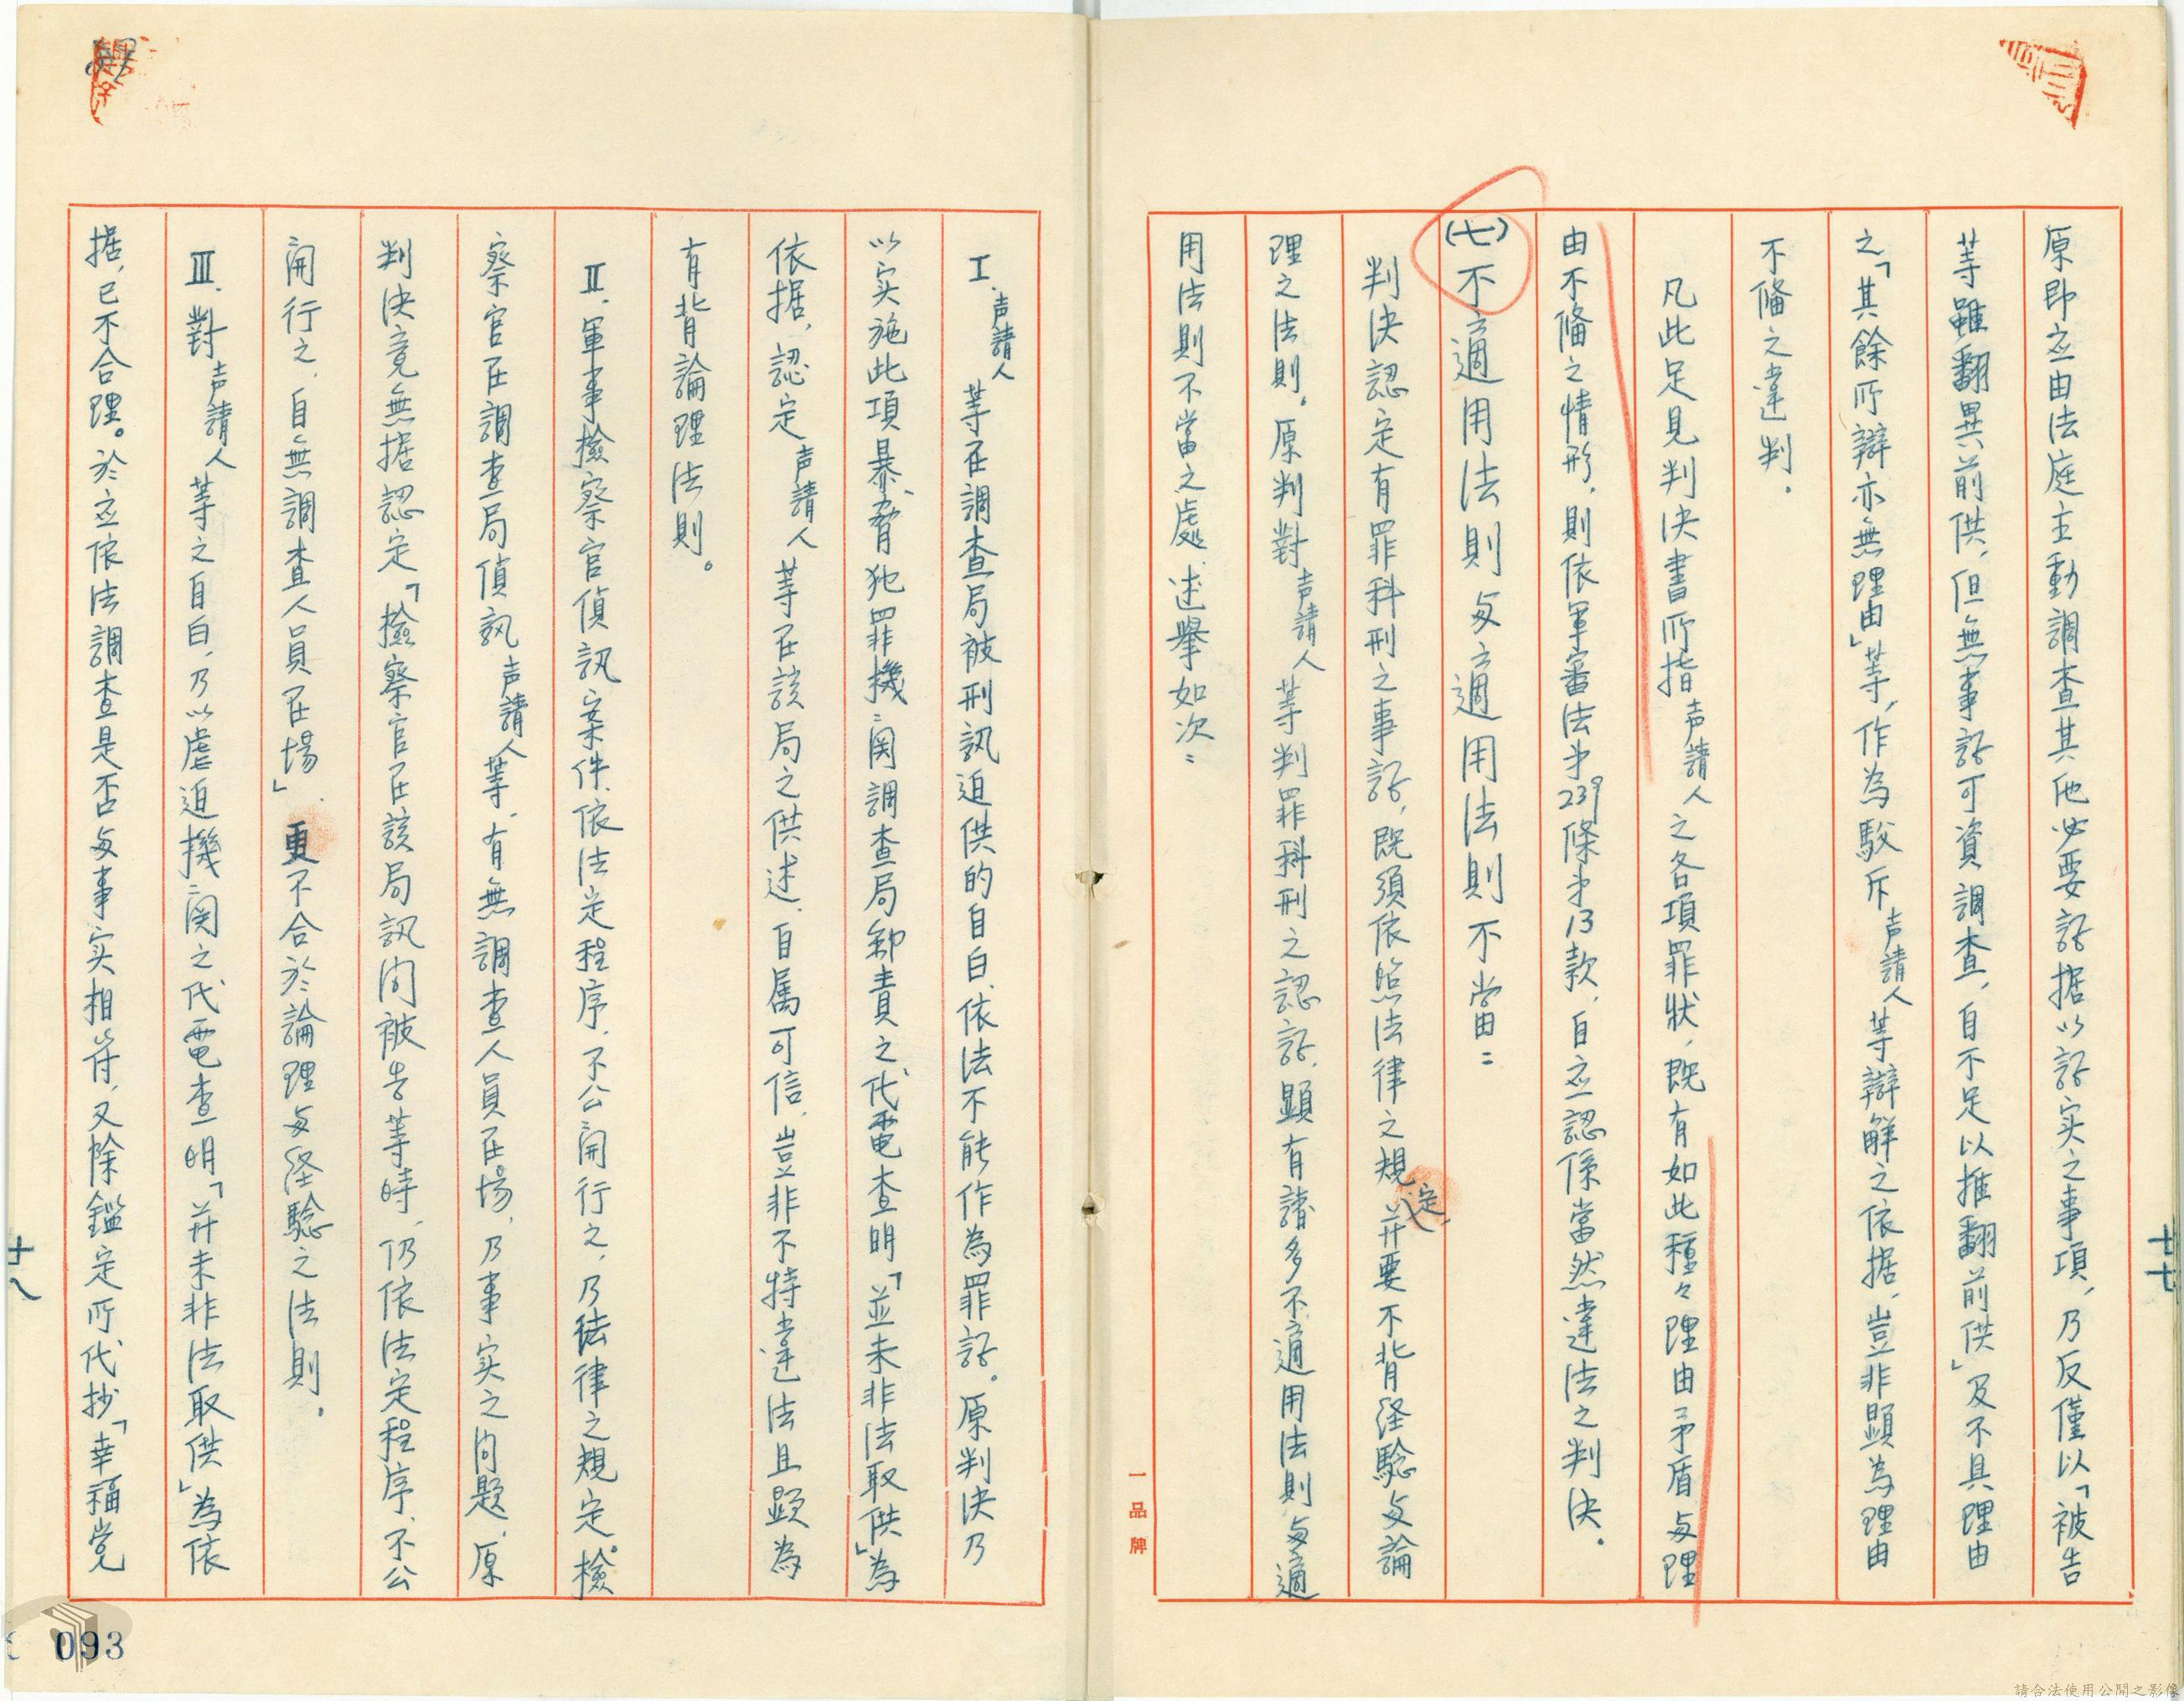 原即应由法庭主動調查其他必要証据以証实之事項，乃反僅以「被告
等雖翻異前供，但無事証可資調查，自不足以推翻前供」及不具理由
之「其餘所辯亦無理由」等，作為駁斥声請人等辯解之依据，豈非顯為理由
不備之違判．
凡此足見判決書所指声請人之各項罪狀，既有如此種々理由矛盾与理
由不備之情形，則依軍審法㐧239條㐧13款，自应認係當然違法之判決．
(七)不適用法則与適用法則不當：
判決認定有罪科刑之事証，既須依照法律之規定，并要不背経驗与論
理之法則。原判對声請人等判罪科刑之認証，顯有諸多不適用法則与適
用法則不當之處．述舉如次：
十七
一品牌
I．声請人等在調查局被刑訊迫供的自白，依法不能作為罪証。原判決乃
以实施此項暴、脅犯罪機関調查局卸責之代電查明「並未非法取供」為
依据，認定声請人等在該局之供述，自属可信，豈非不特違法且顕為
有背論理法則。
II．軍事檢察官偵訊案件，依法定程序，不公開行之，乃法律之規定。檢
察官在調查局偵訊声請人等，有無調查人員在場，乃事实之问題，原
判決竟無据認定「檢察官在該局訊问被告等時，仍依法定程序，不公
開行之，自無調查人員在場」．更不合於論理与経驗之法則．
III．對声請人等之自白，乃以虐迫機関之代電查明「并未非法取供」為依
据，已不合理。於应依法調查是否与事实相符，又除鑑定所代抄「幸福党
十八
093
請合法使用公開之影像